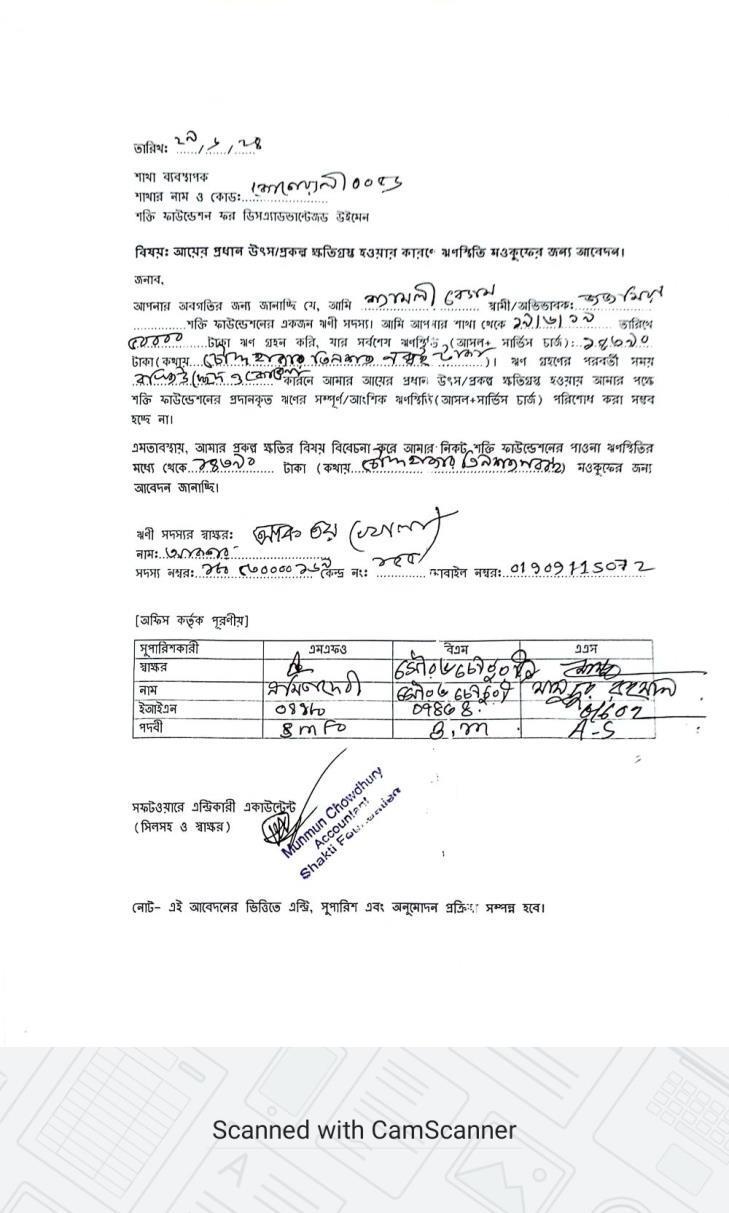 তারিখ: ২৯/১/২৪
শাখা ব্যবস্থাপক
শাখার নাম ও কোড:
শক্তি ফাউন্ডেশন ফর ডিসএ্যাডভান্টেজড উইমেন
বিষয়: আয়ের প্রধান উৎস/প্রকল্প ক্ষতিগ্রস্থ হওয়ার কারণে ঋণস্থিতি মওকুফের জন্য আবেদন।
জনাব,
আপনার অবগতির জন্য জানাচ্ছি যে, আমি শ্যামলী বেগম স্বামী/অভিভাবক: মিয়া
শক্তি ফাউন্ডেশনের একজন ঋণী সদস্য। আমি আপনার শাখা থেকে ২৯/৬/১৯ তারিখে
৫০০০০ টাকা ঋণ গ্রহন করি, যার সর্বশেষ ঋণস্থিতি (আসল+ সার্ভিস চার্জ): ১৪৩৯০
টাকা (কথায় চৌদ্দ হাজার তিনশত নব্বই টাকা)। ঋণ গ্রহণের পরবর্তী সময়
কারনে আমার আয়ের প্রধান উৎস/প্রকল্প ক্ষতিগ্রস্থ হওয়ায় আমার পক্ষে
শক্তি ফাউন্ডেশনের প্রদানকৃত ঋণের সম্পূর্ণ/আংশিক ঋণস্থিতি(আসল+সার্ভিস চার্জ) পরিশোধ করা সম্ভব
হচ্ছে না।
এমতাবস্থায়, আমার প্রকল্প ক্ষতির বিষয় বিবেচনা করে আমার নিকট শক্তি ফাউন্ডেশনের পাওনা ঋণস্থিতির
মধ্যে থেকে ১৪৩৯০ টাকা (কথায় চৌদ্দ হাজার তিনশত নব্বই) মওকুফের জন্য
আবেদন জানাচ্ছি।
ঋণী সদস্যর স্বাক্ষর:
নাম:
সদস্য নম্বর: কেন্দ্র নং: মোবাইল নম্বর: 01909115072
[অফিস কর্তৃক পূরণীয়]
সুপারিশকারী এমএফও বিএম এএস
স্বাক্ষর সৌরভ চৌধুরী
নাম সৌরভ চৌধুরী মাসুদুর রহমান
ইআইএন
পদবী B.m A-S
সফটওয়ারে এন্ট্রিকারী একাউন্টেন্ট
(সিলসহ ও স্বাক্ষর)
Munmun Chowdhury
Accountant
Shakti Foundation
নোট- এই আবেদনের ভিত্তিতে এন্ট্রি, সুপারিশ এবং অনুমোদন প্রক্রিয়া সম্পন্ন হবে।
Scanned with CamScanner